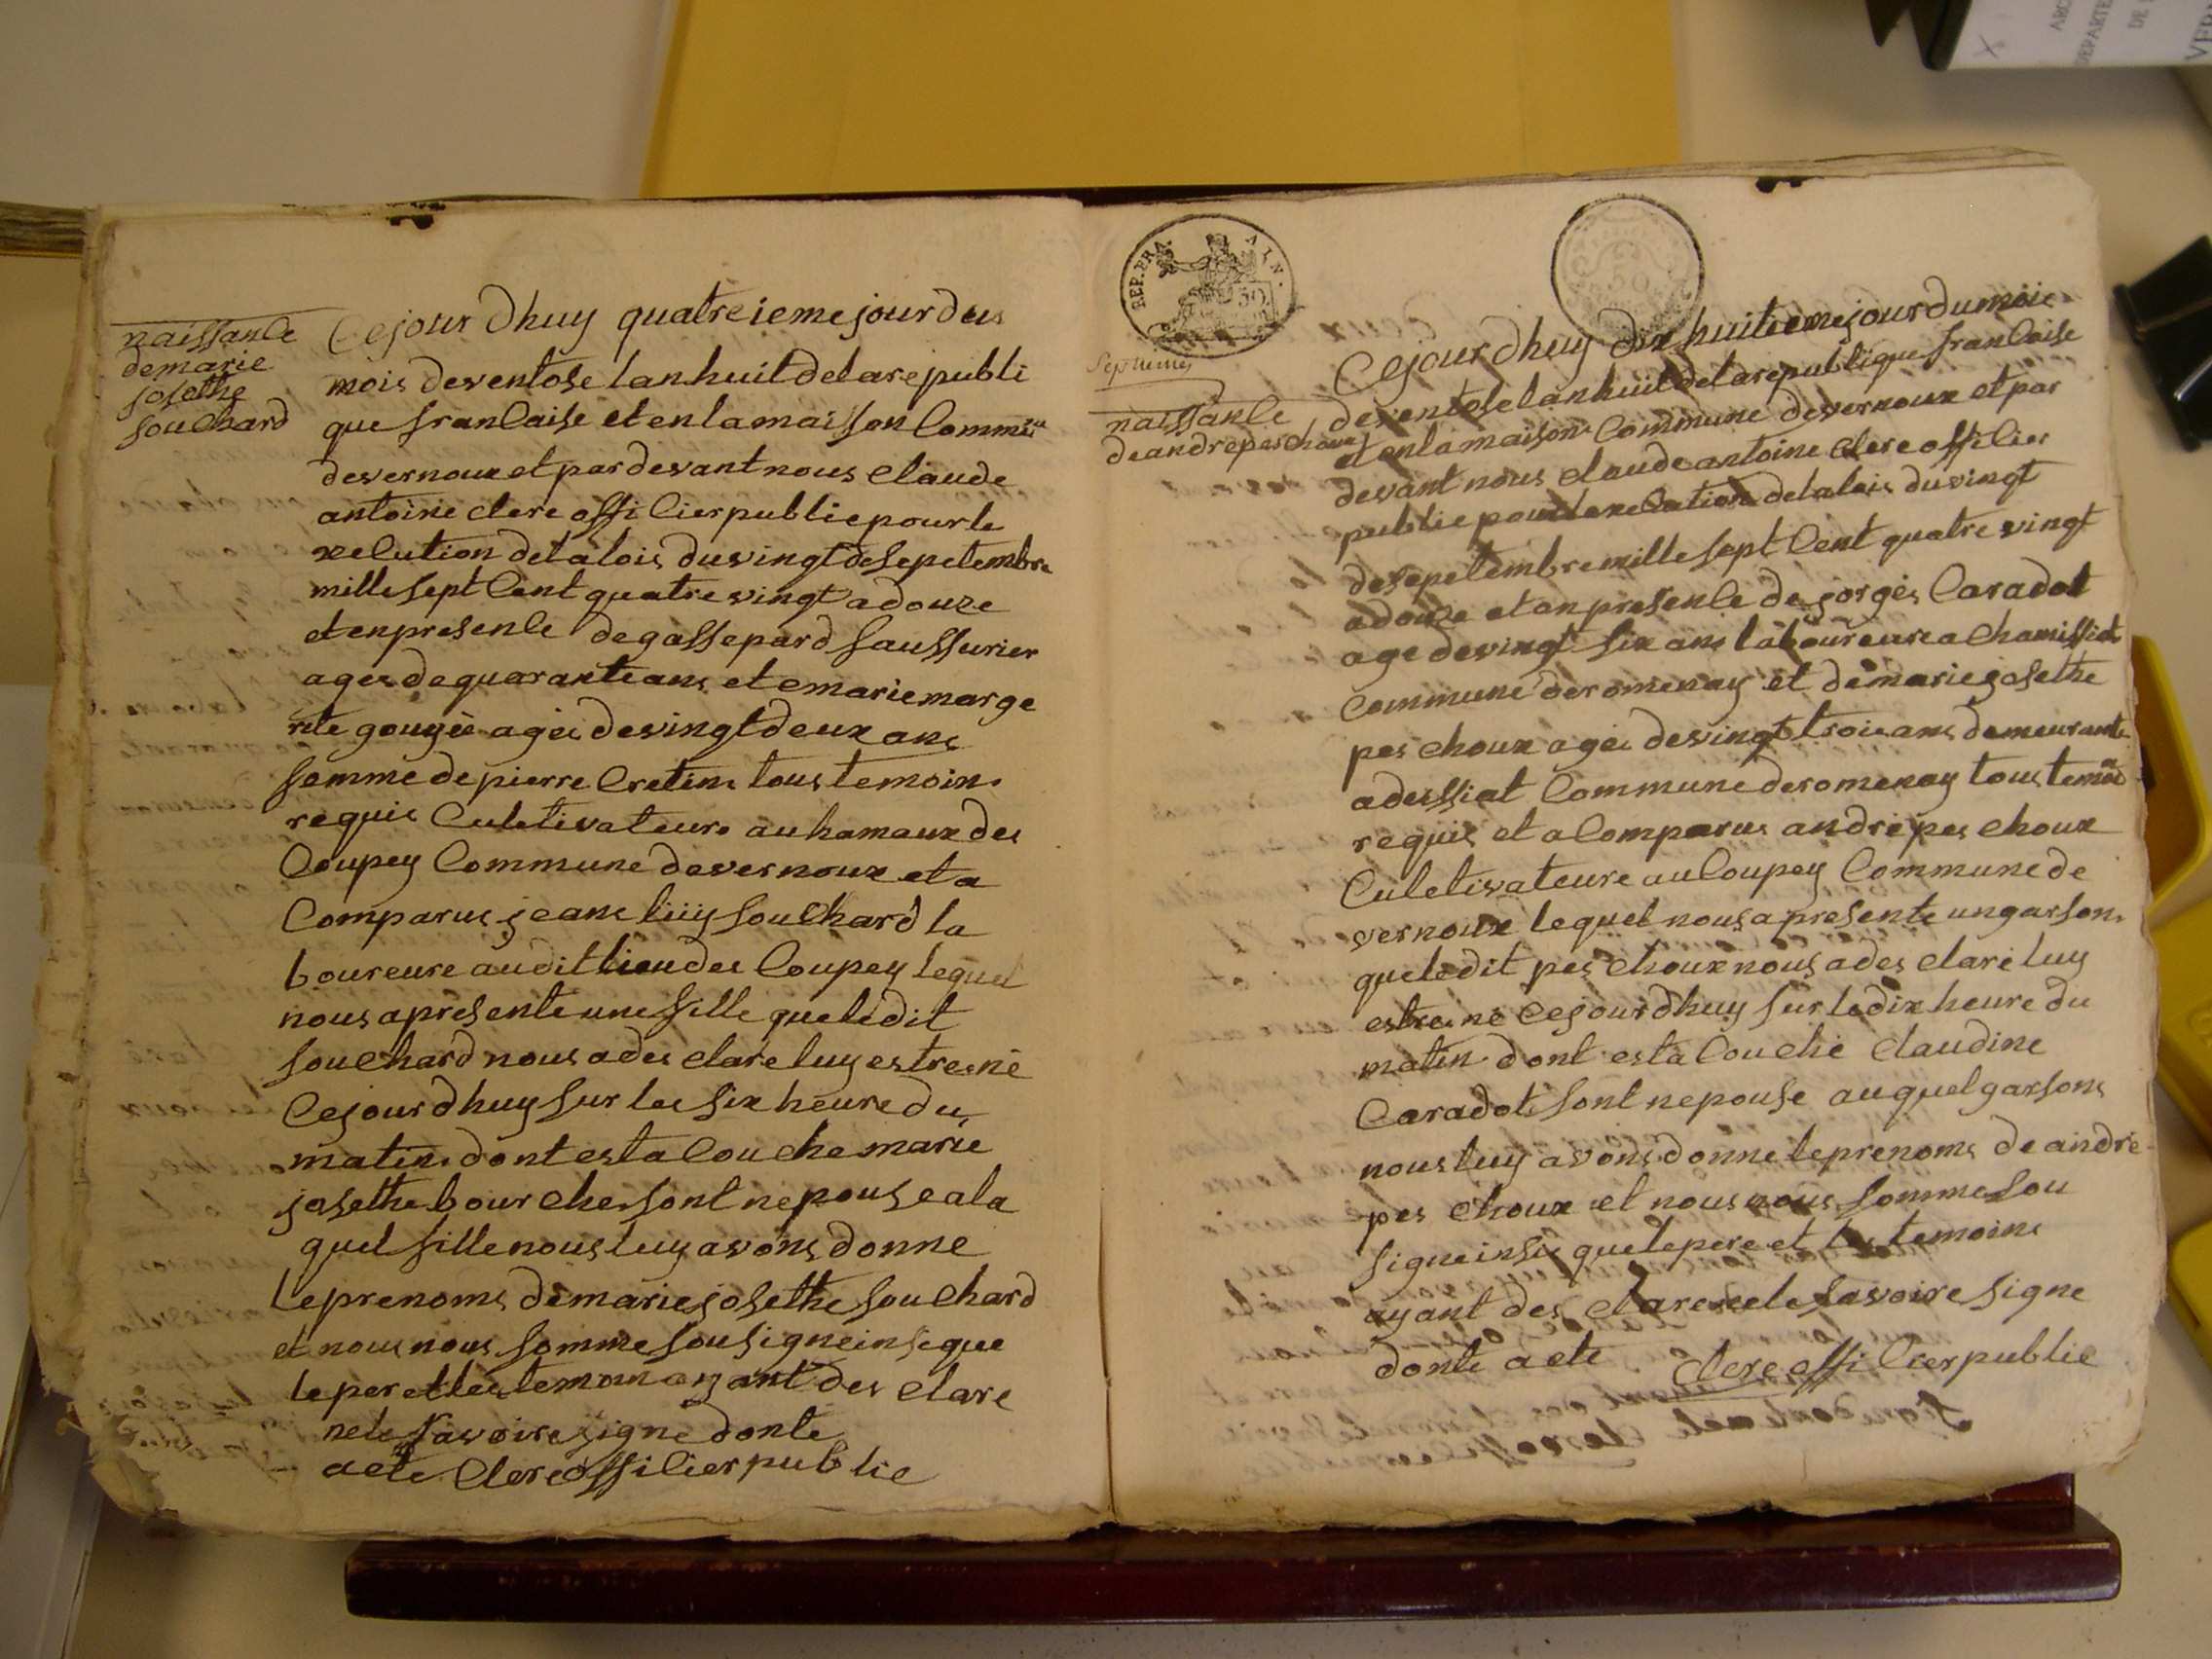 naissance
de marie
josethe
souchard
Cejour dhuy quatreieme jour dus
mois deventose lan huit delarepubli
que francaise et en la maisson Commune
devernoux et par devant nous Claude
antoine clerc officier publie pour le
xecution delalois du vingt desepetembre
mille sept Cent quatre vingt adouze
et en presence de gassepard saussurier
ages de quarante ans et emarie marge
rite gouyée agée devingt deux ans
femme de pierre Cretin tous temoins
requis Culetivateurs au hamaux des
Coupey Commune devernoux et a
Comparus jeans souchard la
boureure audit lieu des Coupey lequel
nous apresente une fille que ledit
souchard nous ades clare luy estre né
Cejourdhuy sur les six heure du
matin dont est a Couche marie
josethe bourche sont nepouse ala
quel fille nous luy avons donne
leprenoms de marie josethe souchard
et nous nous somme sousigne insi que
le per et les temoin ayant des clare
nele savoire signe donte
acte Clerc officier publie
REP. FRA.
AIN.
50
septieme
naissance
de andre pes choux
Cejourdhuy dix huitieme jour du mois
deventose lan huit delarepublique francaise
et en la maison Commune devernoux et par
devant nous claude antoine clerc officier
publie pour lexecution delalois du vingt
desepetembre mille sept Cent quatre vingt
adouze et en presence de jorges Caradot
age devingt six ans laboureure a Chamissiat
Commune deromenay et de marie josethe
pes choux agée devingt trois ans demeurante
adeissiat Commune deromenay tous temoin
requis et a Comparus andre pes choux
Culetivateure au Coupey Commune de
vernoux lequel nous apresente un garson
queledit pes choux nous ades claré luy
estre né Cejourdhuy sur ledix heure du
matin dont est a Couché Claudine
Caradot sont nepouse auquel garsons
nous luy avons donne leprenoms de andre
pes choux et nous nous somme sou
signe insi que le pere et les temoins
ayant des clare nele savoire signe
donte acte clerc officier publie